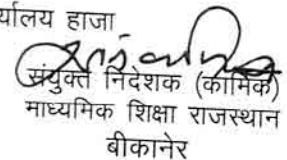 र्यालय हाजा
संयुक्त निदेशक (कार्मिक)
माध्यमिक शिक्षा राजस्थान
बीकानेर